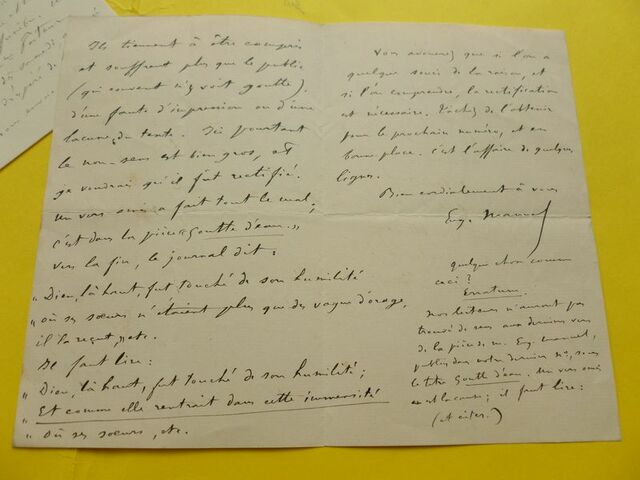 Ils tiennent à être compris
et souffrent plus que le public
(qui souvent n'y voit goutte),
d'une faute d'impression ou d'une
lacune du texte. Ici pourtant
le non-sens est bien gros, et
je voudrais qu'il fût rectifié.
un vers omis a fait tout le mal;
c'est dans la pièce «Goutte d'eau.»
vers la fin, le journal dit:
"Dieu, là haut, fut touché de son humilité
"où ses sœurs n'étaient plus que des vagues d'orage,
il la reçut, etc.
Il faut lire:
"Dieu, là haut, fut touché de son humilité;
"Et comme elle rentrait dans cette immensité
"Où ses sœurs, etc.
Vous avouerez que si l'on a
quelque souci de la raison, et
si l'on comprendre, la rectification
est nécessaire. Tâchez de l'obtenir
pour le prochain numéro, et en
bonne place. c'est l'affaire de quelques
lignes.
Bien cordialement à vous
Eug. Manuel
quelque chose comme
ceci?
Erratum.
nos lecteurs n'auront pas
trouvé de sens aux derniers vers
de la pièce de m. Eug. Manuel,
publiée dans notre dernier no, sous
le titre Goutte d'eau. Un vers omis
en est la cause; il faut lire:
(et citer.)